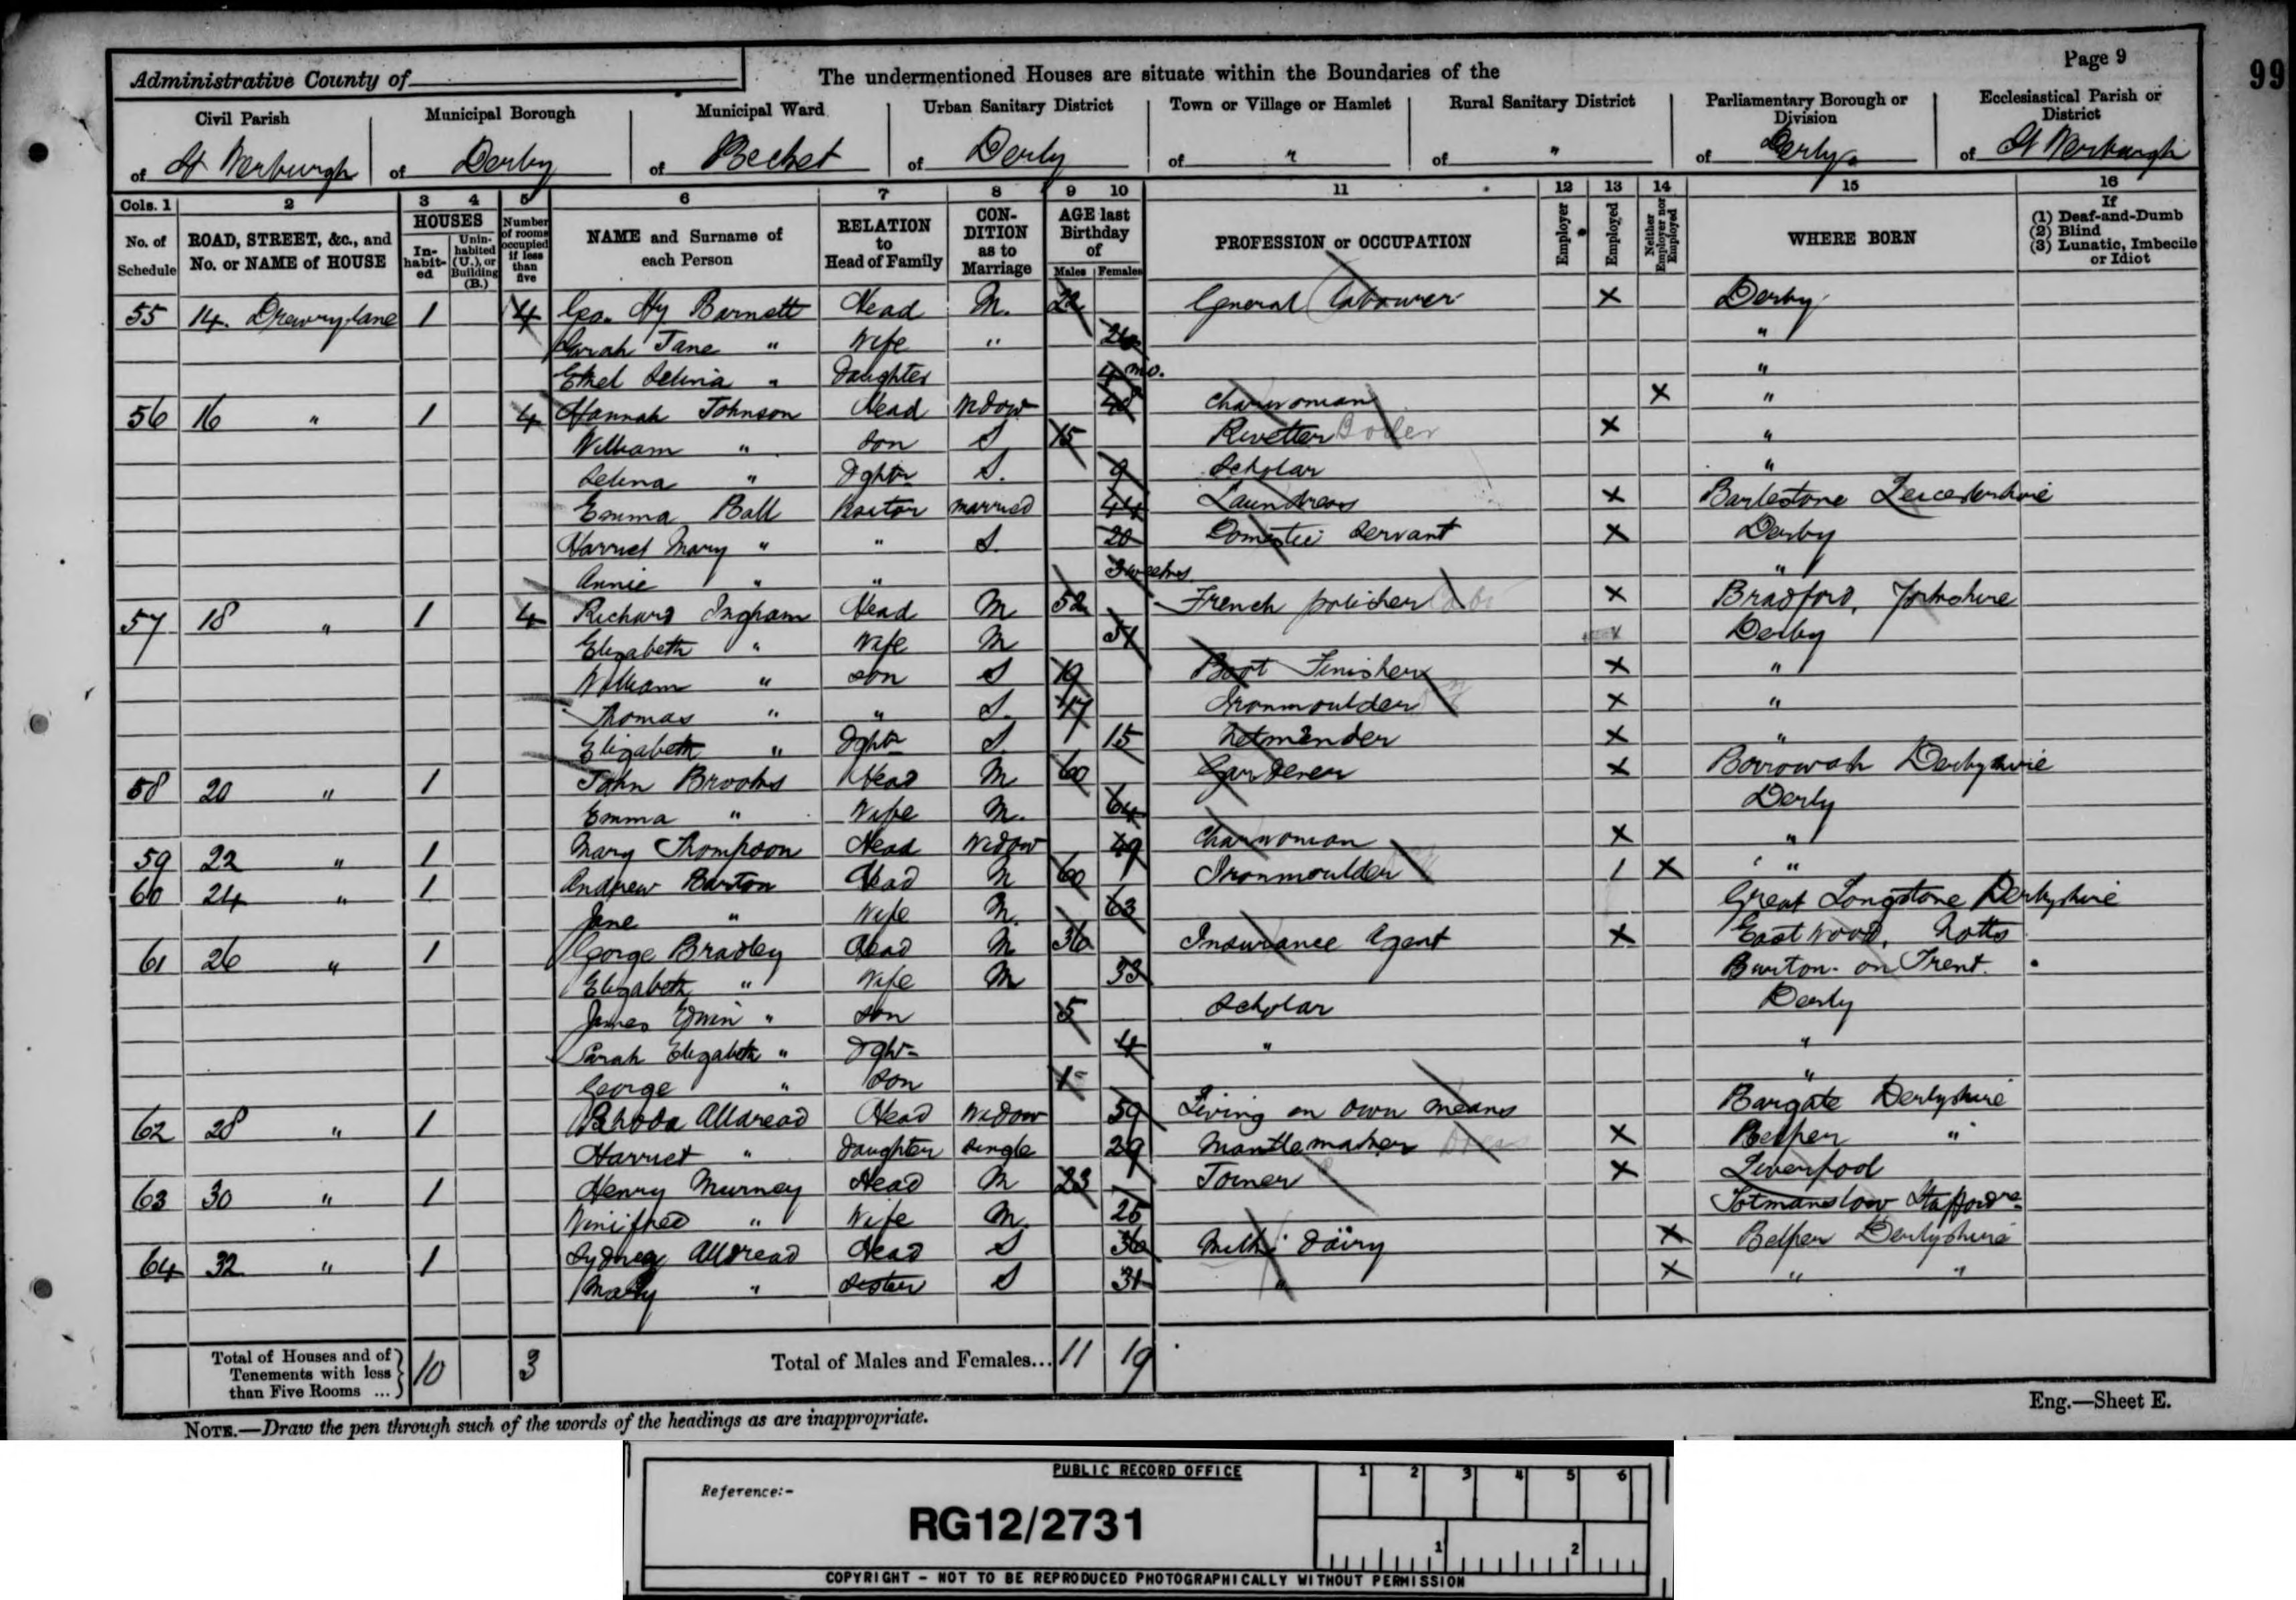 Page 9
99
Administrative County of
The undermentioned Houses are situate within the Boundaries of the
Civil Parish of St Werburgh
Municipal Borough of Derby
Municipal Ward of Becket
Urban Sanitary District of Derby
Town or Village or Hamlet of "
Rural Sanitary District of "
Parliamentary Borough or Division of Derby
Ecclesiastical Parish or District of St Werburgh
Cols. 1 2 3 4 5 6 7 8 9 10 11 12 13 14 15 16
No. of Schedule
ROAD, STREET, &c., and No. or NAME of HOUSE
HOUSES
Inhabited
Uninhabited (U.), or Building (B.)
Number of rooms occupied if less than five
NAME and Surname of each Person
RELATION to Head of Family
CONDITION as to Marriage
AGE last Birthday of
Males Females
PROFESSION or OCCUPATION
Employer
Employed
Neither Employer nor Employed
WHERE BORN
If (1) Deaf-and-Dumb (2) Blind (3) Lunatic, Imbecile or Idiot
55 14. Drewry lane 1 4 Geo. Hy Barnett Head M. 22 General Labourer X Derby
Sarah Jane " Wife " "
Ethel Selina " Daughter 4 mo. "
56 16 " 1 4 Hannah Johnson Head Widow 48 Charwoman X "
William " Son S 15 Rivetter Boiler X "
Selina " Dghtr S. 9 Scholar "
Emma Ball Visitor Married 44 Laundress X Barlestone Leicestershire
Harriet Mary " " S. 20 Domestic Servant X Derby
Annie " " 3 weeks "
57 18 " 1 4 Richard Ingham Head M 52 French polisher X Bradford, Yorkshire
Elizabeth " Wife M 51 Derby
William " Son S 19 Boot Finisher X "
Thomas " " S. 17 Ironmoulder X "
Elizabeth " Dghtr S 15 Netmender X "
58 20 " 1 John Brooks Head M 60 Gardener X Borrowash Derbyshire
Emma " Wife M. 64 Derby
59 22 " 1 Mary Thompson Head Widow 49 Charwoman X "
60 24 " 1 Andrew Barton Head M 60 Ironmoulder 1 X "
Jane " Wife M. 63 Great Longstone Derbyshire
61 26 " 1 George Bradley Head M 36 Insurance Agent X Eastwood, Notts
Elizabeth " Wife M 33 Burton-on Trent.
James Edwin " Son 5 Scholar Derby
Sarah Elizabeth " Dghtr 4 " "
George " Son 1 "
62 28 " 1 Rhoda Alldread Head Widow 59 Living on own means Bargate Derbyshire
Harriet " Daughter Single 29 Mantlemaker Dress X Belper "
63 30 " 1 Henry Murney Head M 23 Joiner X Liverpool
Winifred " Wife M. 25 Totmanslow Staffords
64 32 " 1 Sydney Alldread Head S 36 Milk Dairy X Belper Derbyshire
Mary " Sister S 31 " X " "
Total of Houses and of Tenements with less than Five Rooms ... 10 3
Total of Males and Females... 11 19
Eng.—Sheet E.
NOTE.—Draw the pen through such of the words of the headings as are inappropriate.
PUBLIC RECORD OFFICE
1 2 3 4 5 6
Reference:-
RG12/2731
1 2
COPYRIGHT - NOT TO BE REPRODUCED PHOTOGRAPHICALLY WITHOUT PERMISSION